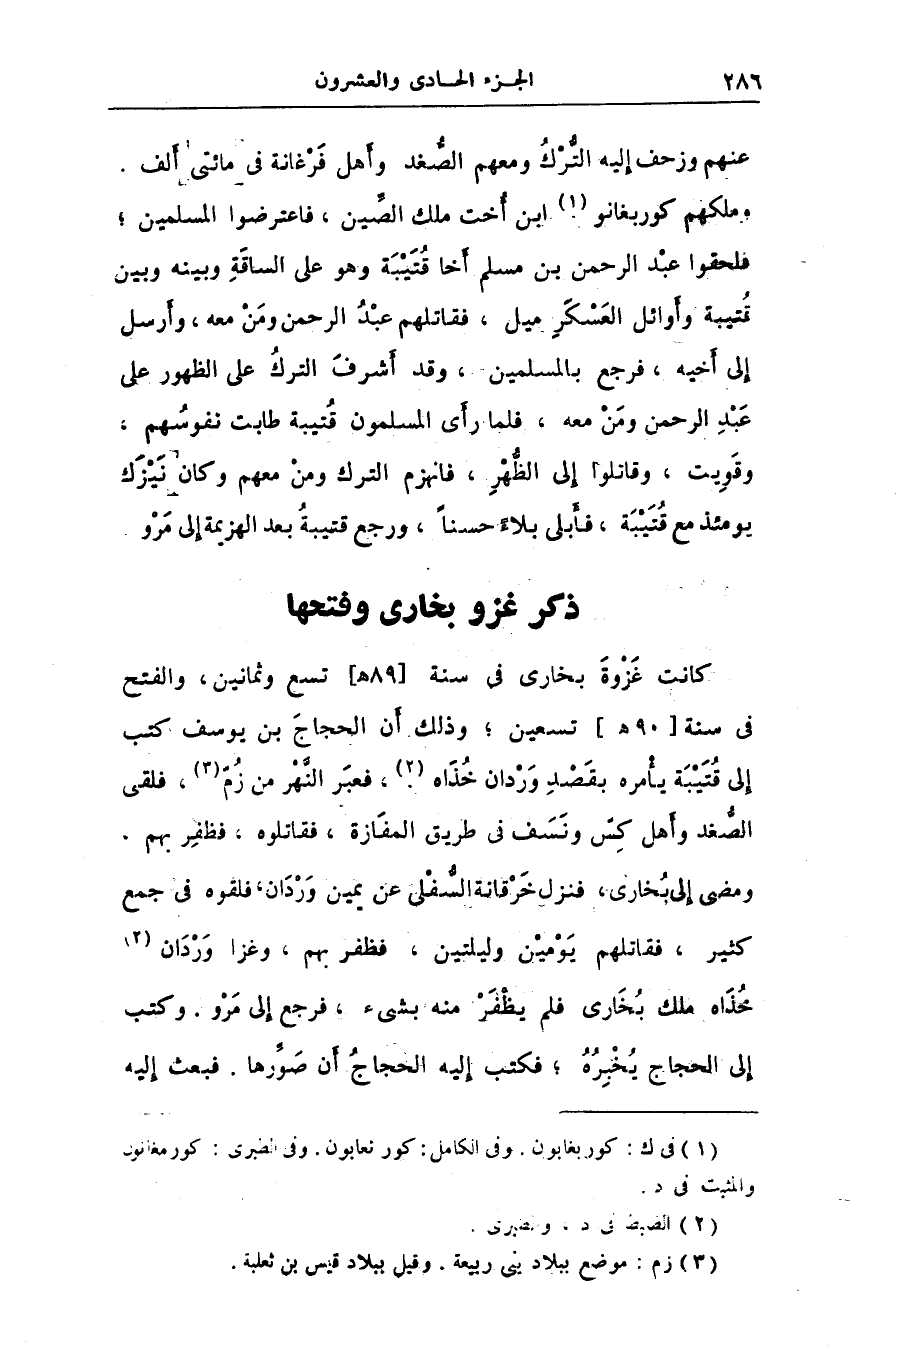 ٢٨٦ الجـزء الحـادى والعشرون
عنهم وزحف إليه التُّرْكُ ومعهم الصُّغد وأهل فَرْغانة فى مائتى ألف .
وملكهم كوربغانو (١) ابن أُخت ملك الصِّين ، فاعترضوا المسلمين ؛
فلحقوا عبْد الرحمن بن مسلم أخا قُتَيْبَة وهو على الساقَةِ وبينه وبين
قُتيبة وأَوائل العَسْكَرِ ميل ، فقاتلهم عبْدُ الرحمن ومَنْ معه ، وأَرسل
إلى أَخيه ، فرجع بالمسلمين ، وقد أَشرفَ التركُ على الظهور على
عَبْدِ الرحمن ومَنْ معه ، فلما رأَى المسلمون قُتيبة طابت نفوسُهم ؛
وقَوِيت ، وقاتلوا إلى الظُّهْرِ ، فانهزم الترك ومنْ معهم وكان نَيْزَك
يومئذ مع قُتَيْبَة ، فأَبلى بلاءً حسناً ، ورجع قتيبةُ بعد الهزيمة إلى مَرْو .
ذكر غزو بخارى وفتحها
كانت غَزْوةَ بخارى فى سنة [٨٩ه] تسع وثمانين ، والفتح
فى سنة [ ٩٠ه ] تسعين ؛ وذلك أَن الحجاجَ بن يوسف كتب
إلى قُتَيْبَة يأْمره بقَصْدِ وَرْدان خُذَاه (٢) ، فعبَر النَّهْر من زُمّ(٣) ، فلقى
الصُّغد وأَهل كِسّ ونَسَف فى طريق المفَازة ، فقاتلوه ، فظفِر بهم .
ومضى إلى بُخارى ، فنزل خَرْقانة السُّفْلى عن يمين وَرْدَان ، فلقوه فى جمع
كثير ، فقاتلهم يَوْمَيْن وليلتين ، فظفر بهم ، وغزا وَرْدَان (٢)
خُذَاه ملك بُخَارى فلم يظْفَرْ منه بشىء ، فرجع إلى مَرْو . وكتب
إلى الحجاج يُخْبِرُهُ ؛ فكتب إليه الحجاجُ أَن صَوِّرها . فبعث إليه
(١) فى ك : كوربغابون . وفى الكامل : كور نعابون . وفى الطبرى : كورمغانون
والمثبت فى د .
(٢) الضبط فى د ، والطبرى .
(٣) زم : موضع ببلاد بنى ربيعة . وقيل ببلاد قيس بن ثعلبة .